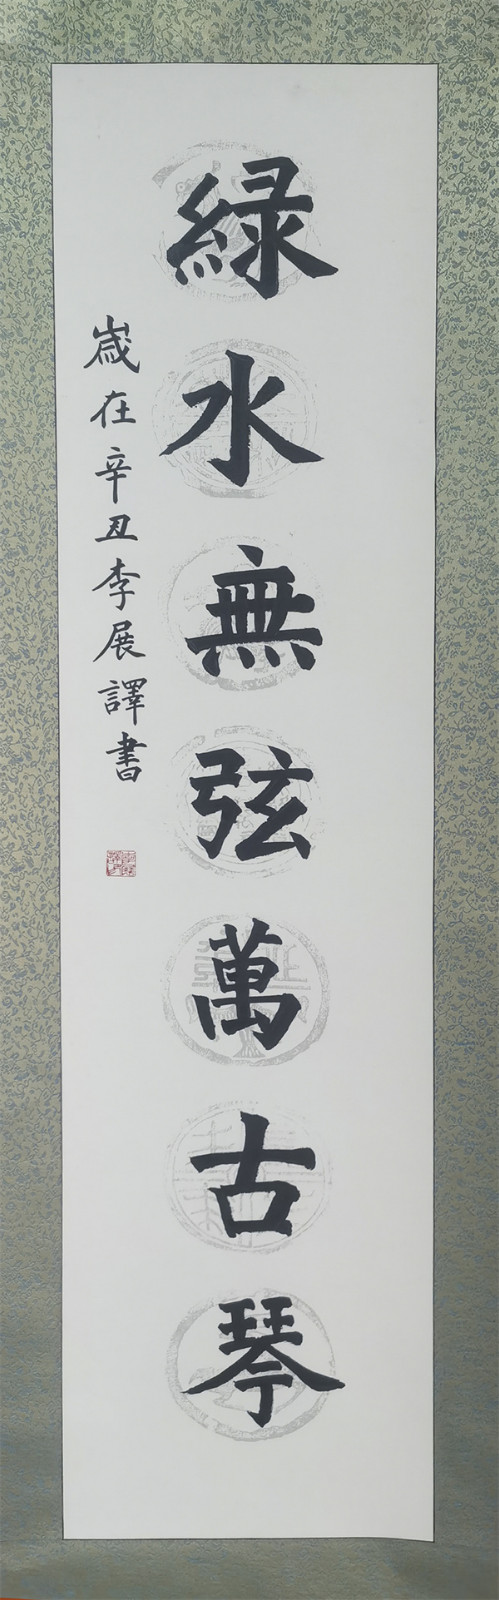 緑水無弦萬古琴
歲在辛丑李展譯書